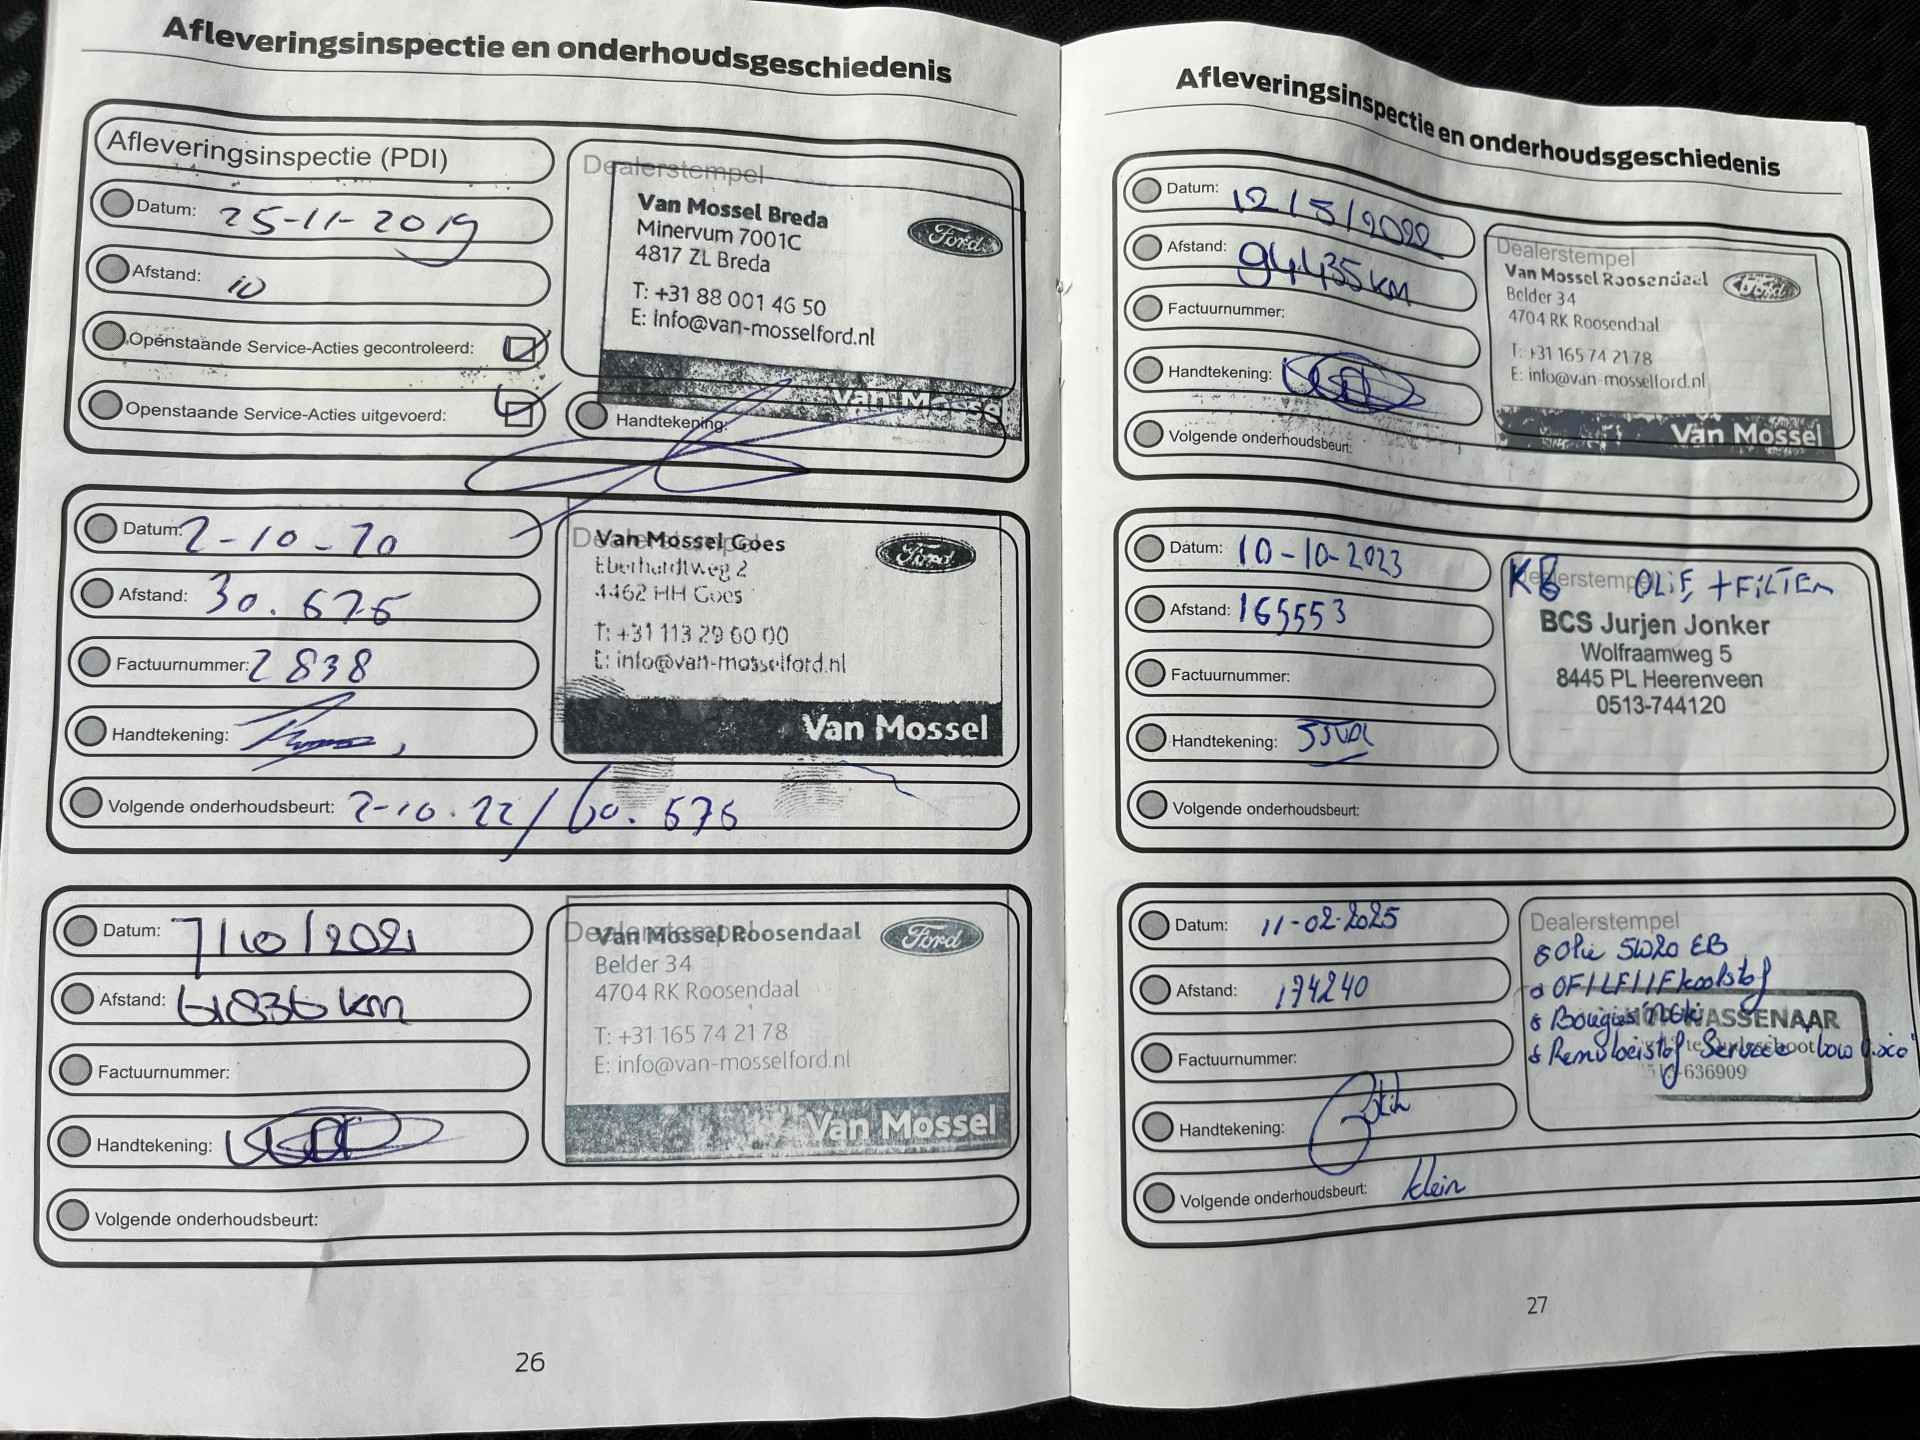 Afleveringsinspectie en onderhoudsgeschiedenis
Afleveringsinspectie (PDI)
Datum: 25-11-2019
Afstand: 10
Openstaande Service-Acties gecontroleerd:
Openstaande Service-Acties uitgevoerd:
Dealerstempel
Van Mossel Breda
Minervum 7001C
4817 ZL Breda
Ford
T: +31 88 001 46 50
E: info@van-mosselford.nl
Van Mossel
Handtekening:
Datum: 2-10-20
Afstand: 30.676
Factuurnummer: 2838
Handtekening:
Dealerstempel
Van Mossel Goes
Eberhardtweg 2
4462 HH Goes
Ford
T: +31 113 29 60 00
E: info@van-mosselford.nl
Van Mossel
Volgende onderhoudsbeurt: 2-10.22 / 60.676
Datum: 7/10/2021
Afstand: 61836 km
Factuurnummer:
Handtekening:
Dealerstempel
Van Mossel Roosendaal
Belder 34
4704 RK Roosendaal
Ford
T: +31 165 74 21 78
E: info@van-mosselford.nl
Van Mossel
Volgende onderhoudsbeurt:
26
Afleveringsinspectie en onderhoudsgeschiedenis
Datum: 12/5/2022
Afstand: 94.435 km
Factuurnummer:
Handtekening:
Dealerstempel
Van Mossel Roosendaal
Belder 34
4704 RK Roosendaal
Ford
T: +31 165 74 21 78
E: info@van-mosselford.nl
Van Mossel
Volgende onderhoudsbeurt:
Datum: 10-10-2023
Afstand: 165553
Factuurnummer:
Handtekening:
Dealerstempel
KB OLIE + FILTER
BCS Jurjen Jonker
Wolfraamweg 5
8445 PL Heerenveen
0513-744120
Volgende onderhoudsbeurt:
Datum: 11-02-2025
Afstand: 174240
Factuurnummer:
Handtekening:
Dealerstempel
Olie 5W20 EB
OF/LF/IF koolstof
Bougies NGK
WASSENAAR
Remvloeistof Service Low Visco
636909
Volgende onderhoudsbeurt: klein
27